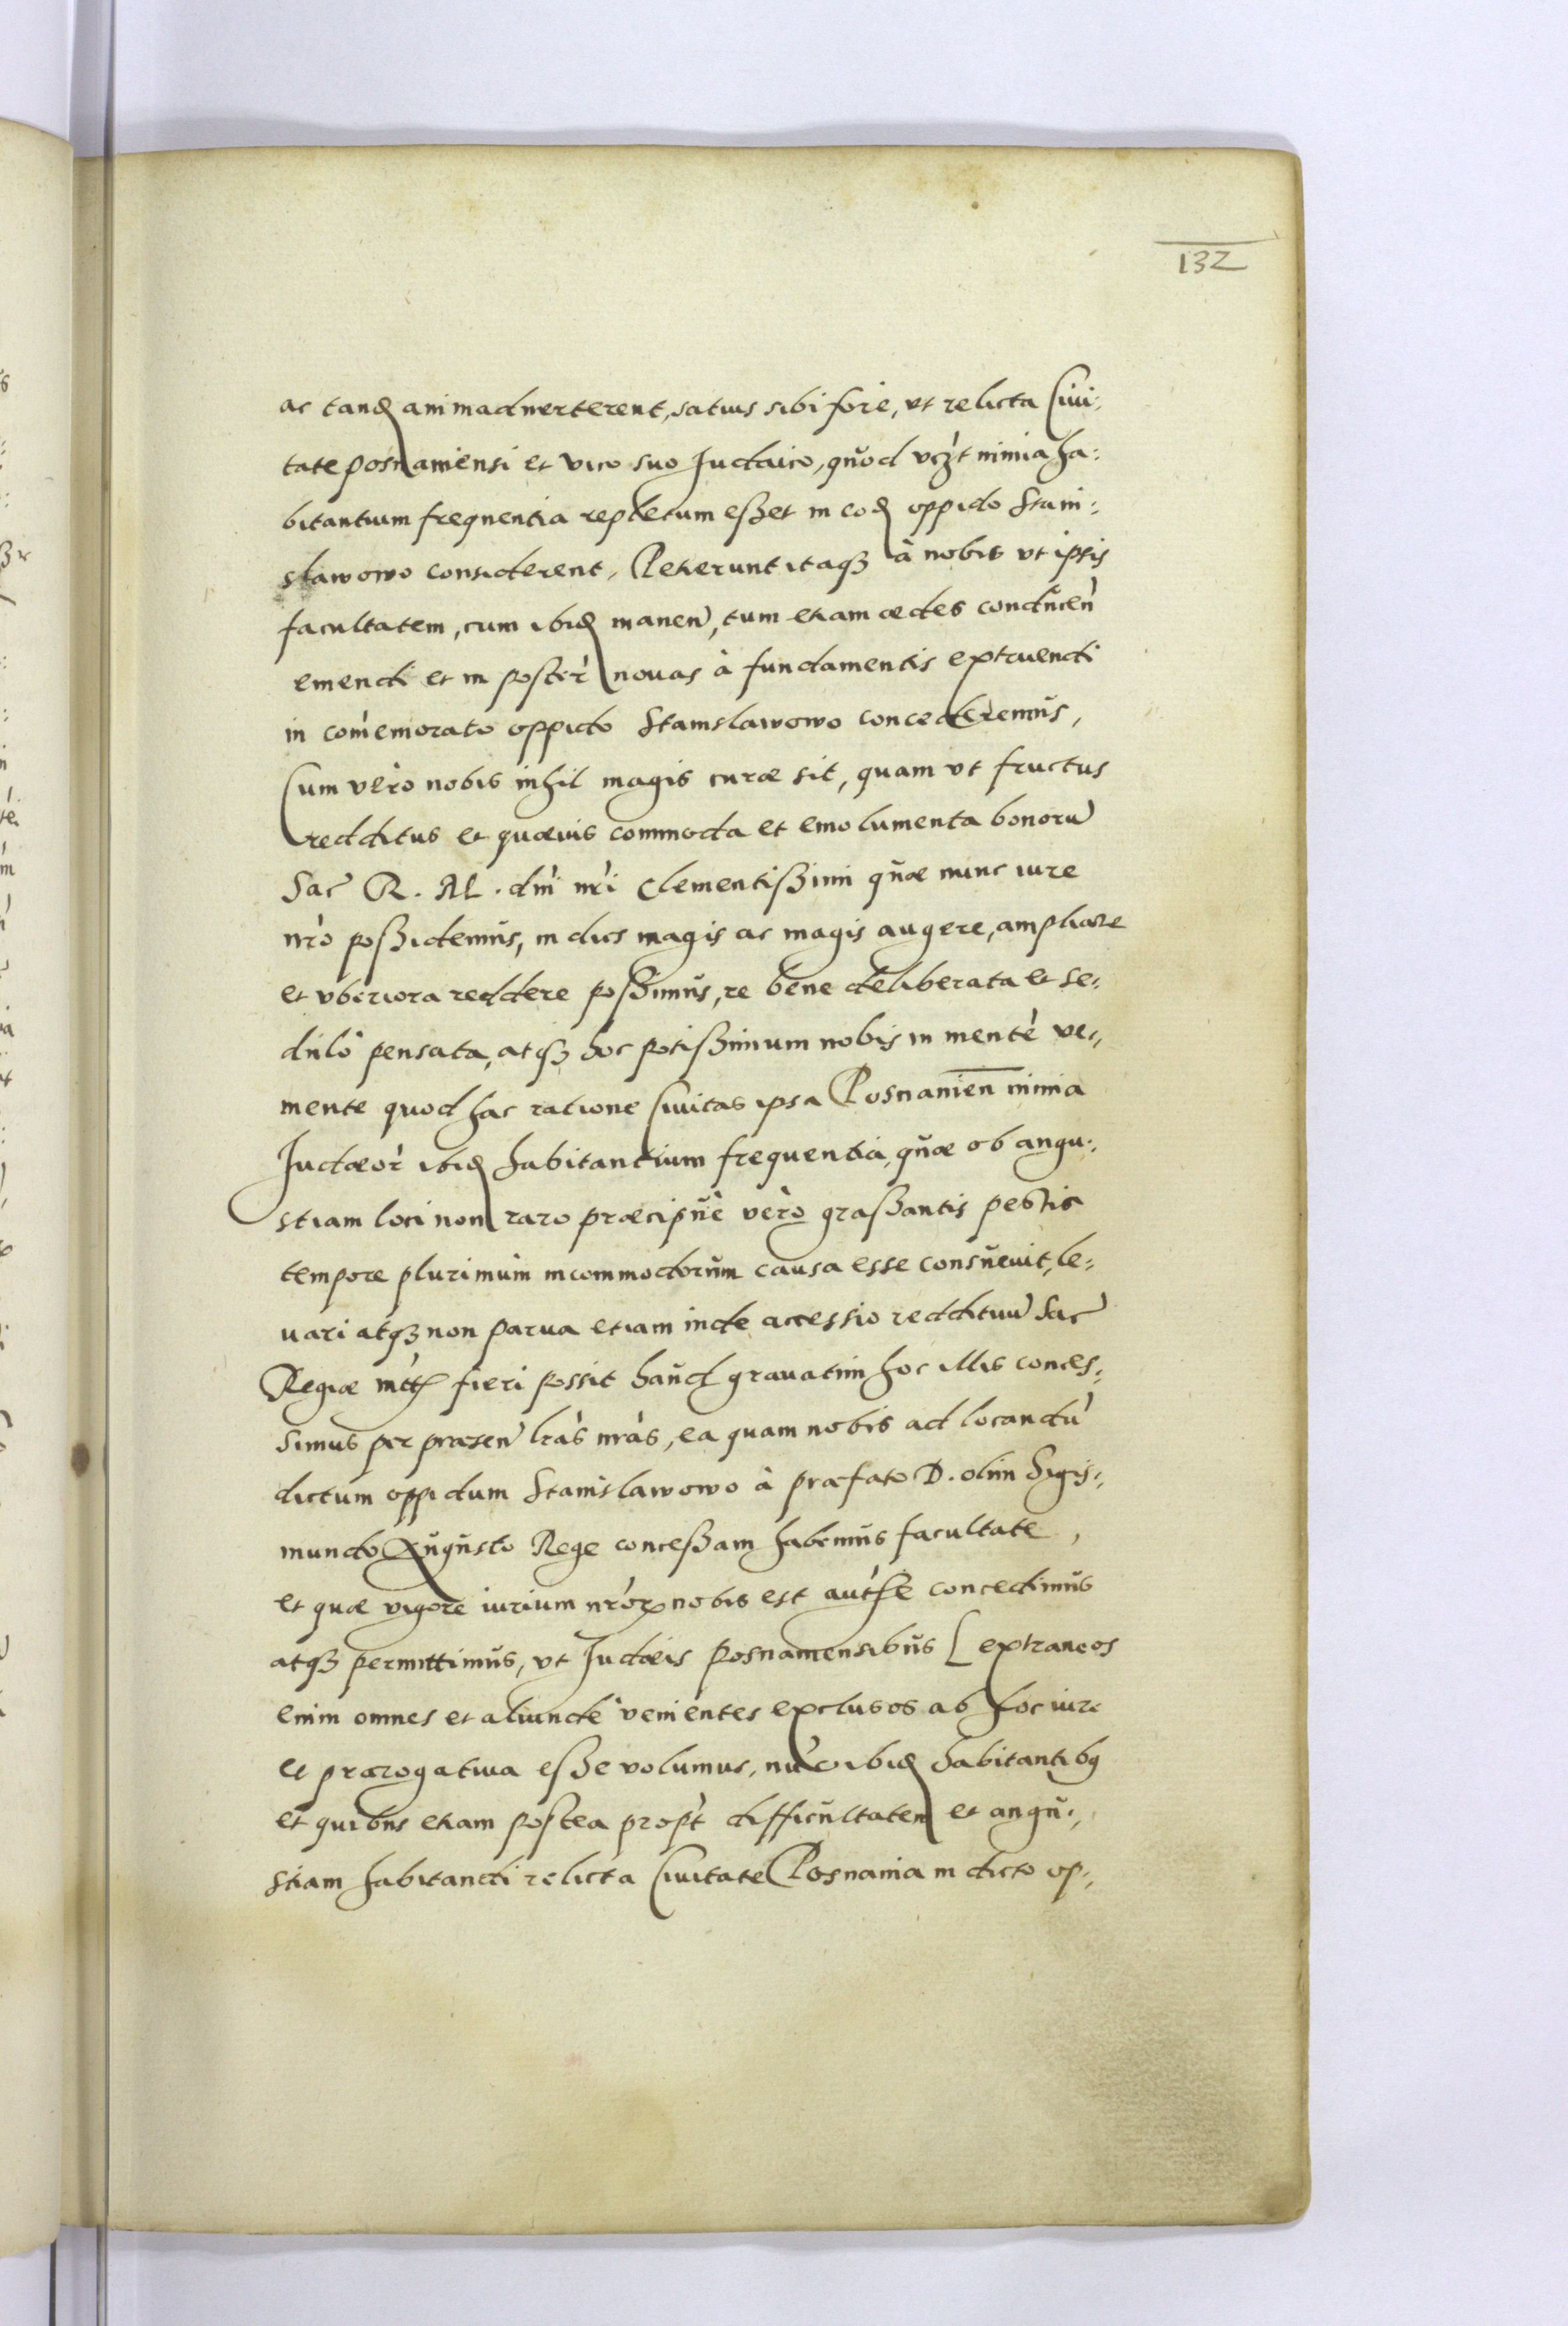 132
ac tandē animaduerterent, satius sibi fore, vt relicta Ciui:
tate posnaniensi et vico suo Judaico, quod vcz̀t nimia ha:
bitantium frequentia repletum eßet in eodē oppido Stani:
slawowo considerent, Petierunt itaqꝫ à nobis vt ipsis
facultatem, cum ibidē manen̄, tum etiam ædes conducen̄
emendi et in poster̀ nouas à fundamentis extruendi
in com̄emorato oppido Stanislawowo concederemus,
Cum vero nobis inhil magis curæ sit, quam vt fructus
redditus et quæuis commoda et emolumenta bonorū
Sac̄ R. M. dn̄i nr̄i Clementißimi quæ nunc iure
nr̄o poßidemus, in dies magis ac magis augere, ampliare
et vberiora reddere poßimus, re bene deliberata et se:
dulò pensata, atqꝫ hoc potißimum nobis in mentē ve:
niente quod hac ratione Ciuitas ipsa Posnanien̄ nimia
Judæor̄ ibidē habitantium frequentia, quæ ob angu:
stiam loci non raro præcipuè verò graßantis pestis
tempore plurimum incommodorum causa esse consueuit, le:
uari atqꝫ non parua etiam inde accessio reddituū Sac̄
Regiæ mtt̄s fieri possit haud grauatim hoc illis conces:
simus per præsen̄ lr̄as nr̄as, ea quam nobis ad locandū
dictum oppidum Stanislawowo à præfato D. olim Sigis:
mundo Augusto Rege conceßam habemus facultate,
et quæ vigore iurium nr̄orꝫ nobis est aut̄hē concedimus
atqꝫ permittimus, vt Judæis posnaniensibus [extraneos
enim omnes et aliunde venientes exclusos ab hoc iure
et prærogatiua eße volumus, nūc ibidē habitantibꝫ
et quibus etiam postea propt̄ difficultatem et angu:
stiam habitandi relicta Ciuitate Posnania in dicto op: